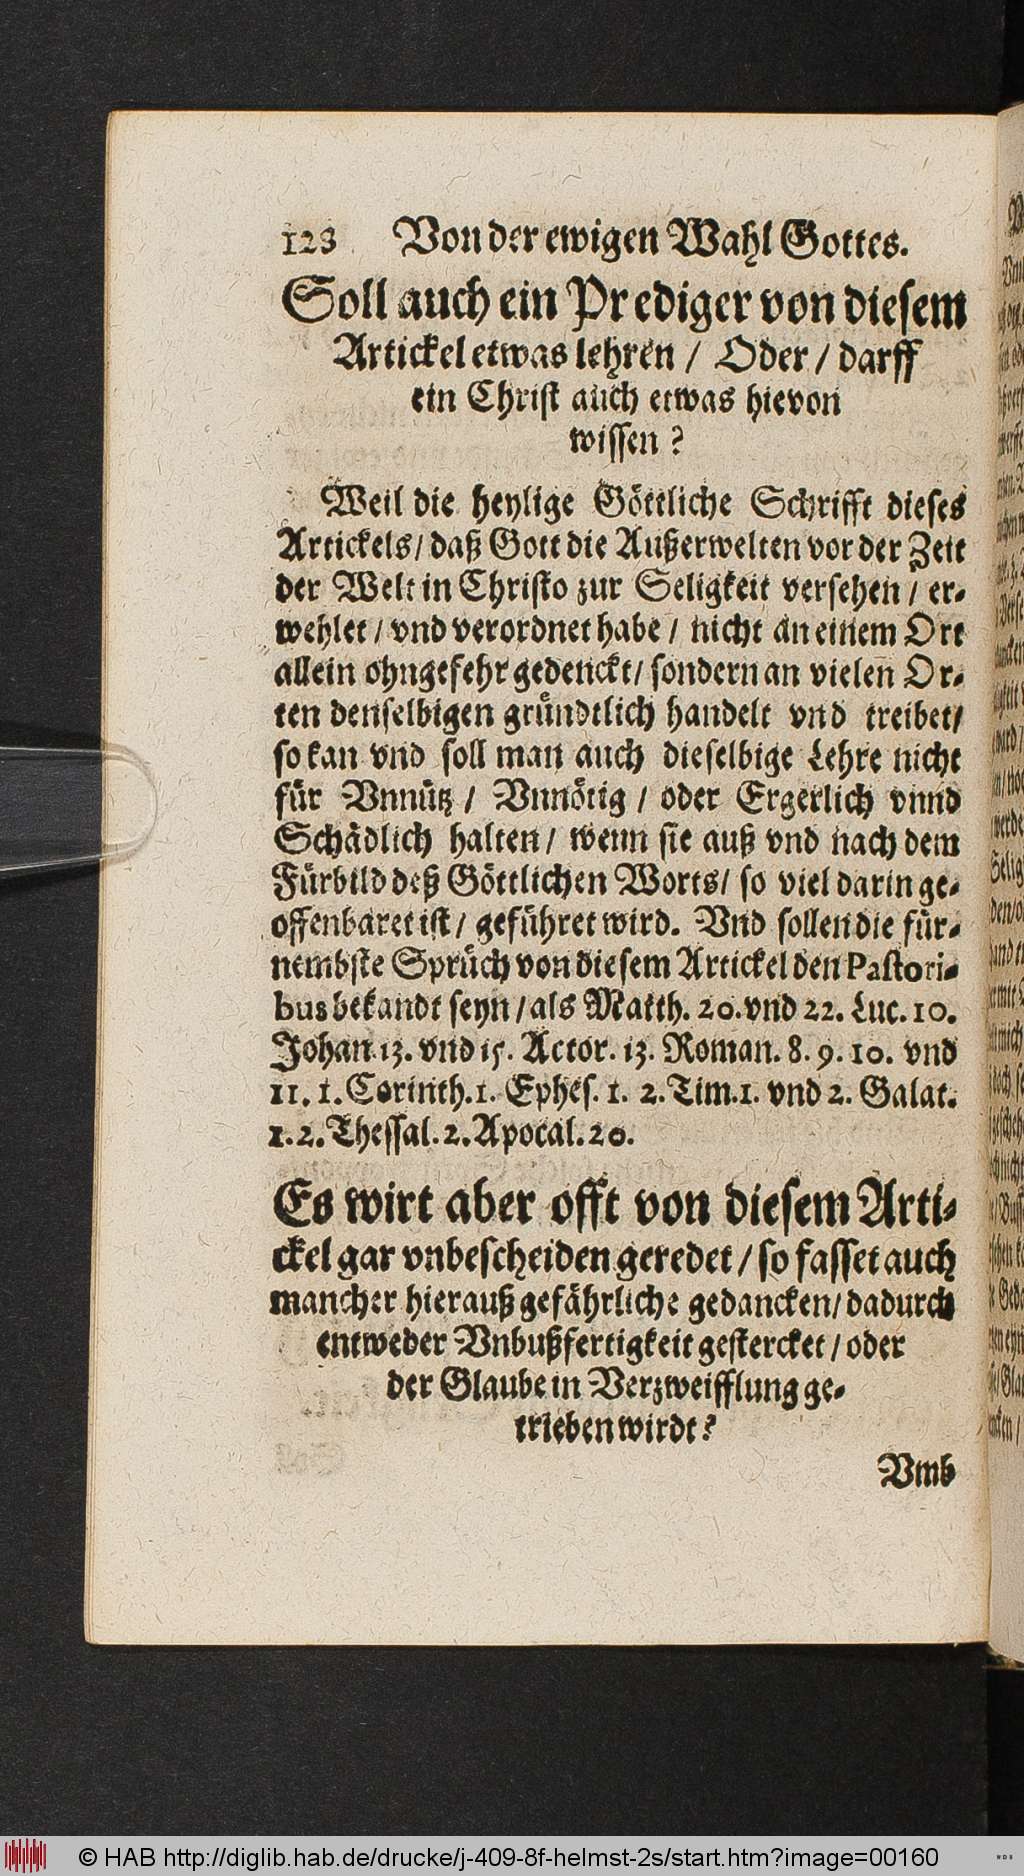 128 Von der ewigen Wahl Gottes.
Soll auch ein Prediger von diesem
Artickel etwas lehren / Oder / darff
ein Christ auch etwas hievon
wissen?
Weil die heylige Göttliche Schrifft dieses
Artickels / daß Gott die Außerwelten vor der Zeit
der Welt in Christo zur Seligkeit versehen / er-
wehlet / vnd verordnet habe / nicht an einem Ort
allein ohngefehr gedenckt / sondern an vielen Or-
ten denselbigen gründtlich handelt vnd treibet /
so kan vnd soll man auch dieselbige Lehre nicht
für Vnnütz / Vnnötig / oder Ergerlich vnnd
Schädlich halten / wenn sie auß vnd nach dem
Fürbild deß Göttlichen Worts / so viel darin ge-
offenbaret ist / geführet wird. Vnd sollen die für-
nembste Sprüch von diesem Artickel den Pastori-
bus bekandt seyn / als Matth. 20. vnd 22. Luc. 10.
Johan. 13. vnd 15. Actor. 13. Roman. 8. 9. 10. vnd
11. 1. Corinth. 1. Ephes. 1. 2. Tim. 1. vnd 2. Galat.
1. 2. Thessal. 2. Apocal. 20.
Es wirt aber offt von diesem Arti-
ckel gar vnbescheiden geredet / so fasset auch
mancher hierauß gefährliche gedancken / dadurch
entweder Vnbußfertigkeit gestercket / oder
der Glaube in Verzweifflung ge-
trieben wirdt?
Vmb
© HAB http://diglib.hab.de/drucke/j-409-8f-helmst-2s/start.htm?image=00160